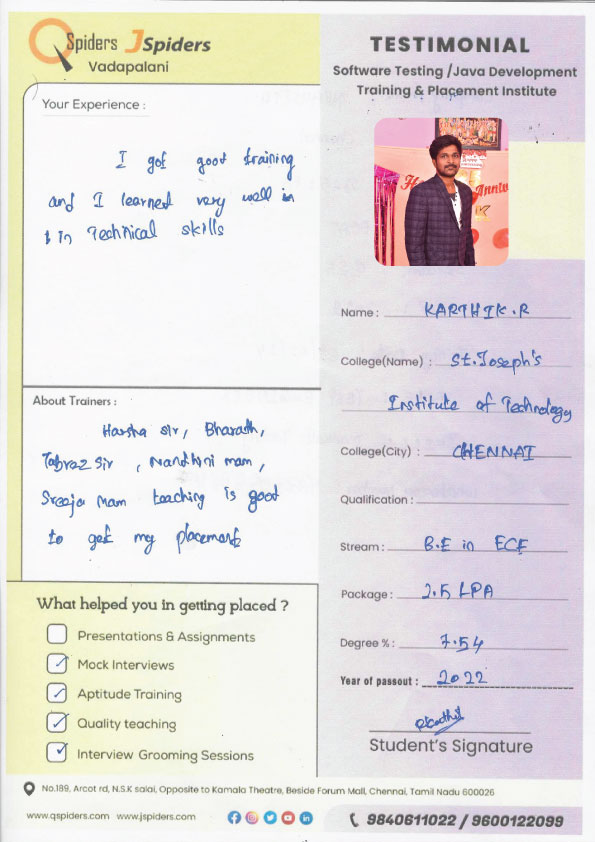 QSpiders JSpiders
Vadapalani
TESTIMONIAL
Software Testing /Java Development
Training & Placement Institute
Your Experience :
I got good training
and I learned very well in
in Technical skills
Name : KARTHIK.R
College(Name) : St.Joseph's
Institute of Technology
College(City) : CHENNAI
Qualification :
Stream : B.E in ECE
Package : 2.5 LPA
Degree % : 7.54
Year of passout : 2022
Student's Signature
About Trainers :
Harsha sir, Bharath,
Tabraz sir , Nandhini mam,
Sreeja Mam teaching is good
to get my placement
What helped you in getting placed ?
Presentations & Assignments
Mock Interviews
Aptitude Training
Quality teaching
Interview Grooming Sessions
No.189, Arcot rd, N.S.K salai, Opposite to Kamala Theatre, Beside Forum Mall, Chennai, Tamil Nadu 600026
www.qspiders.com www.jspiders.com
9840611022 / 9600122099